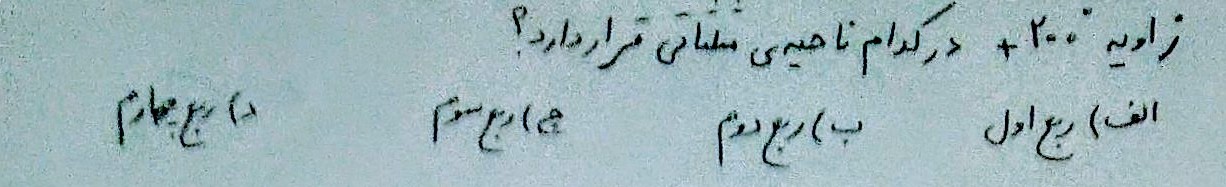 زاویه ۲۰۰° + در کدام ناحیه‌ی مثلثاتی قرار دارد؟
الف) ربع اول ب) ربع دوم ج) ربع سوم د) ربع چهارم